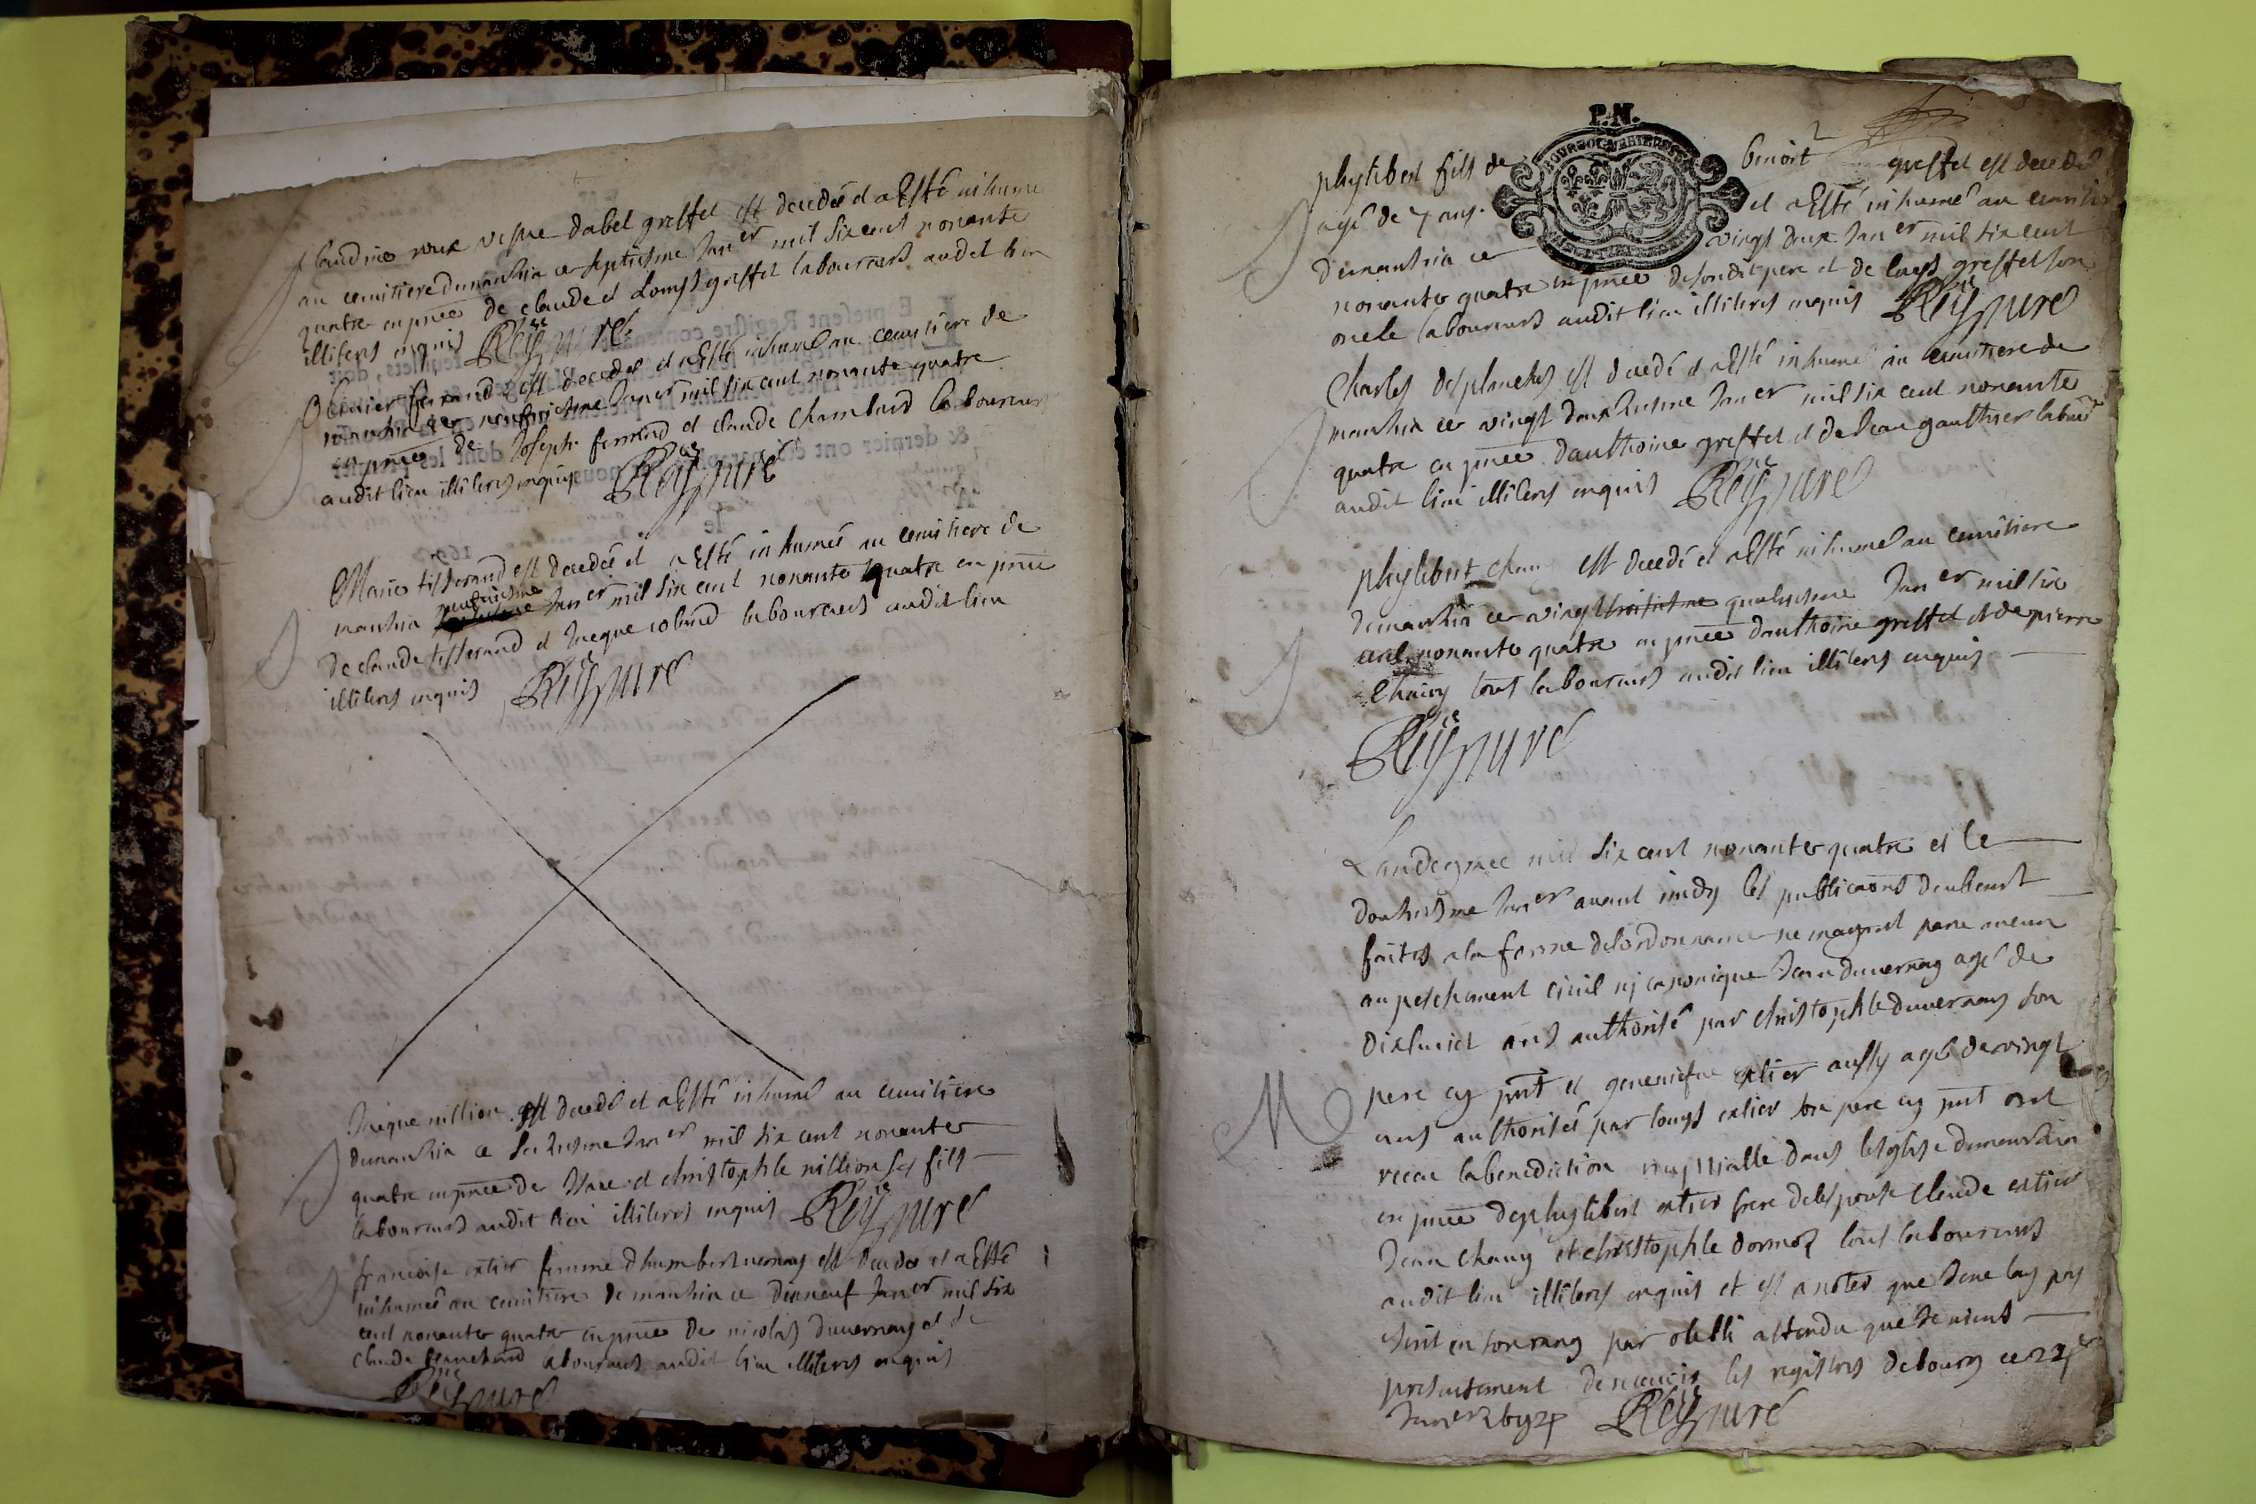 Claudine roux vesve dabel greffet est decedée et a Esté inhumé
au cemitiere dumanthia ce septiesme Janer mil six cent nonante
quatre en pnce de claude et Louys greffet laboureurs audit lieu
illiteres enquis Rey pnre
ferrand est decedé et a Esté inhumé au cemitiere de
manthia ce neufviesme Janer mil six cent nonante quatre
en pnce de Joseph ferrand et claude chambard laboureur
audit lieu illiteres enquis Rey pnre
Marie tisserand est decedée et a Esté inhumée au cemitiere de
manthia neufviesme Janer mil six cent nonante quatre en pnce
de claude tisserand et Jacque coland laboureurs audit lieu
illiteres enquis Rey pnre
Jacque nillion est decedé et a Esté inhumé au cemitiere
dumanthia ce seiziesme Janer mil six cent nonante
quatre en pnce de Isaac et christophle nillion ses fils
laboureurs audit lieu illiteres enquis Rey pnre
francoise extier femme dhumbert vernay est decedee et a Esté
inhumée au cemitiere de manthia ce dixneuf Janer mil six
cent nonante quatre en pnce de nicolas duvernay et de
claude blanchard laboureurs audit lieu illiteres enquis
Rey pnre
P.N.
phylibert fils de benoit greffet est decedé
agé de 7 ans et a Esté inhumé au cemitiere
dumanthia ce vingt deux Janer mil six cent
nonante quatre en pnce de sondit pere et de louys greffet son
oncle laboureurs audit lieu illiteres enquis Rey pnre
Charles desplanches est decedé et a Esté inhumé au cemitiere de
manthia ce vingt deuxiesme Janer mil six cent nonante
quatre en pnce danthoine greffet et de Jean gauthier labour
audit lieu illiteres enquis Rey pnre
phylibert chany est decedé et a Esté inhumé au cemitiere
dumanthia ce vingt troisiesme quatriesme Janer mil six
cent nonante quatre en pnce danthoine greffet et de pierre
chany tous laboureurs audit lieu illiteres enquis
Rey pnre
Landegrace mil six cent nonante quatre et le
douziesme Janer avant midy les publicaons deubeust
faites a la forme de lordonnance ne
empeschement civil ny canonique Jean duvernay agé de
dixhuict ans authorisé par christophle duvernay son
pere cy pnt et geneviefve extier aussy agée de vingt
ans authorisée par louys extier son pere cy pnt ont
receu la benediction nuptialle dans leglise dumanthia
en pnce de phylibert extier frere de lespouse claude extier
Jean chany et christophle dormoz tous laboureurs
audit lieu illiteres enquis et est a noter que Je ne lay pas
escrit en son rang par oubli attendu que Je viens
presentement de recevoir les registres de bourg ce
Janer 1694 Rey pnre